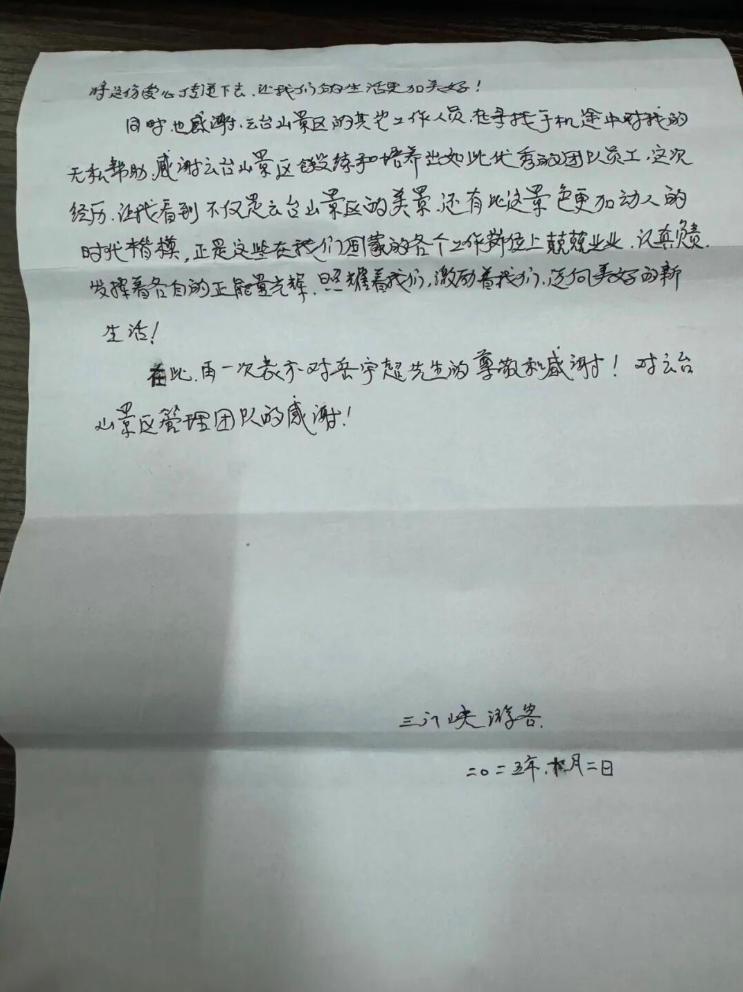 将这份爱心传递下去，让我们的生活更加美好！
同时也感谢，云台山景区的其它工作人员，在寻找手机途中对我的
无私帮助，感谢云台山景区锻练和培养出如此优秀的团队员工，这次
经历，让我看到不仅是云台山景区的美景，还有比这景色更加动人的
时代楷模，正是这些在我们国家的各个工作岗位上兢兢业业，认真负责，
发挥着各自的正能量光辉，照耀着我们，激励着我们，迈向美好的新
生活！
在此，再一次表示对岳宇超先生的尊敬和感谢！对云台
山景区管理团队的感谢！
三门峡游客.
二〇二五年 月二日